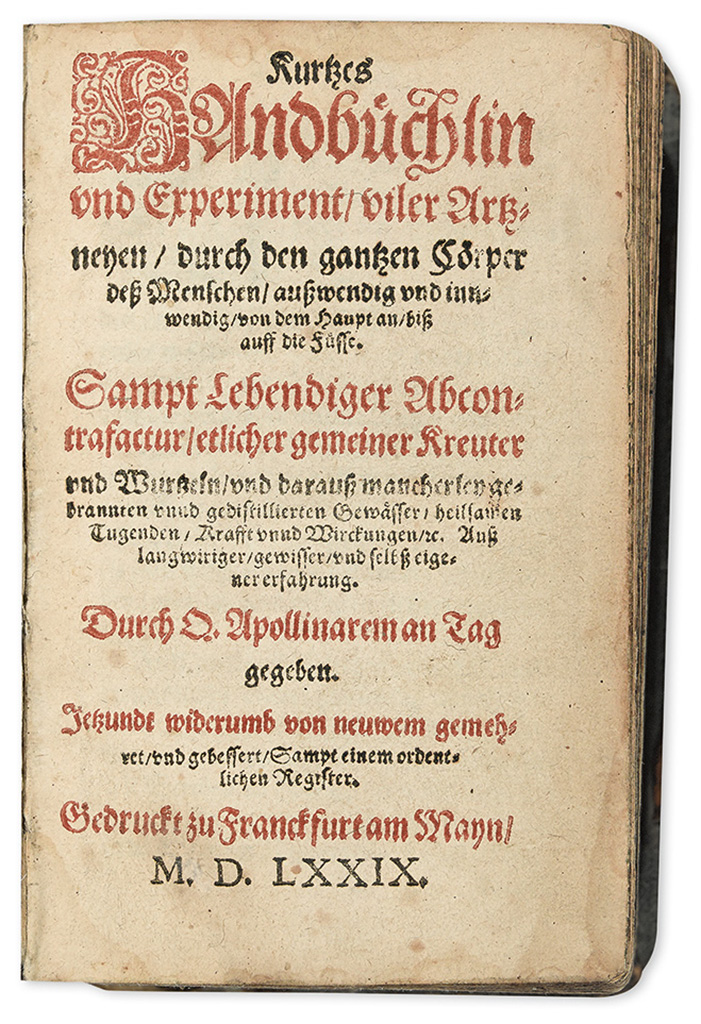 Kurtzes
HAndbüchlin
vnd Experiment/ viler Artz⸗
neyen / durch den gantzen Cörper
deß Menschen/ außwendig vnd inn⸗
wendig/von dem Haupt an/biß
auff die Füsse.
Sampt Lebendiger Abcon⸗
trafactur/etlicher gemeiner Kreuter
vnd Wurtzeln/vnd darauß mancherley ge⸗
brannten vnnd gedistillierten Gewässer/ heilsamen
Tugenden / Krafft vnnd Wirckungen/ꝛc. Auß
langwiriger/gewisser/vnd selbß eige⸗
ner erfahrung.
Durch Q. Apollinarem an Tag
gegeben.
Jetzundt widerumb von neuwem gemeh⸗
ret/vnd gebessert/Sampt einem ordent⸗
lichen Register.
Gedruckt zu Franckfurt am Mayn/
M. D. LXXIX.